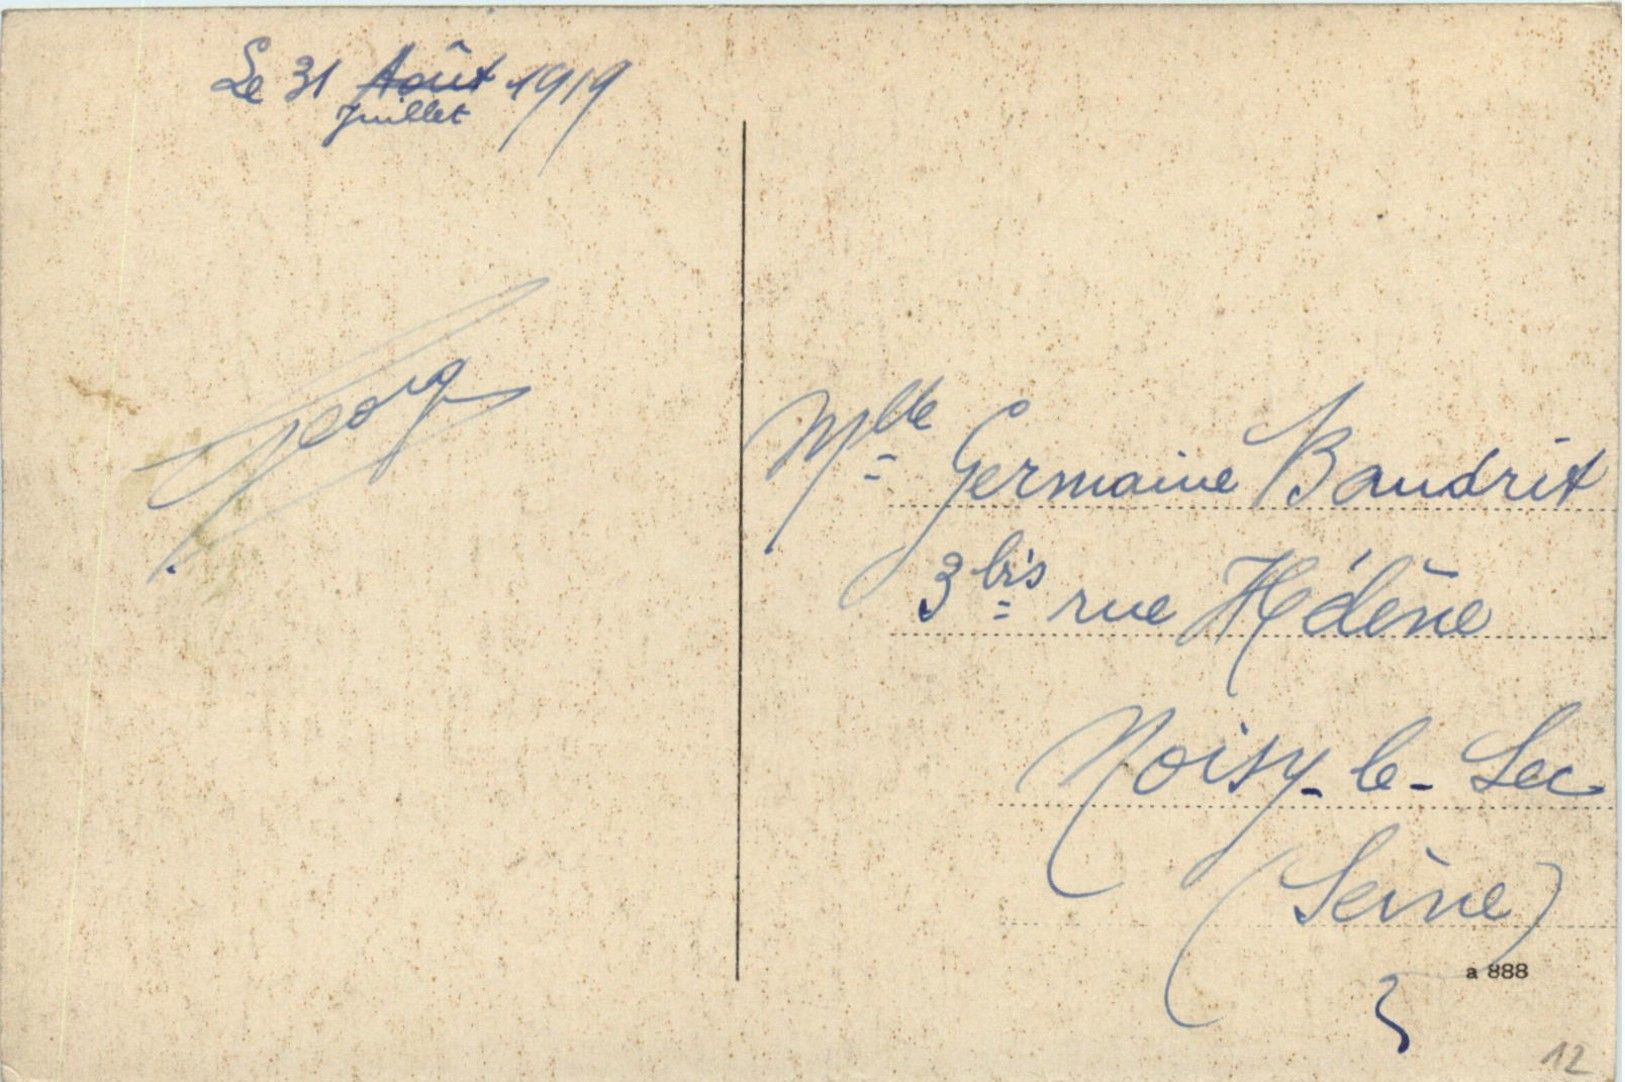 Le 31 Août 1919
Juillet
Georg
Mlle Germaine Baudrit
3 bis rue Hélène
Noisy-le-Sec
(Seine)
a 888
12